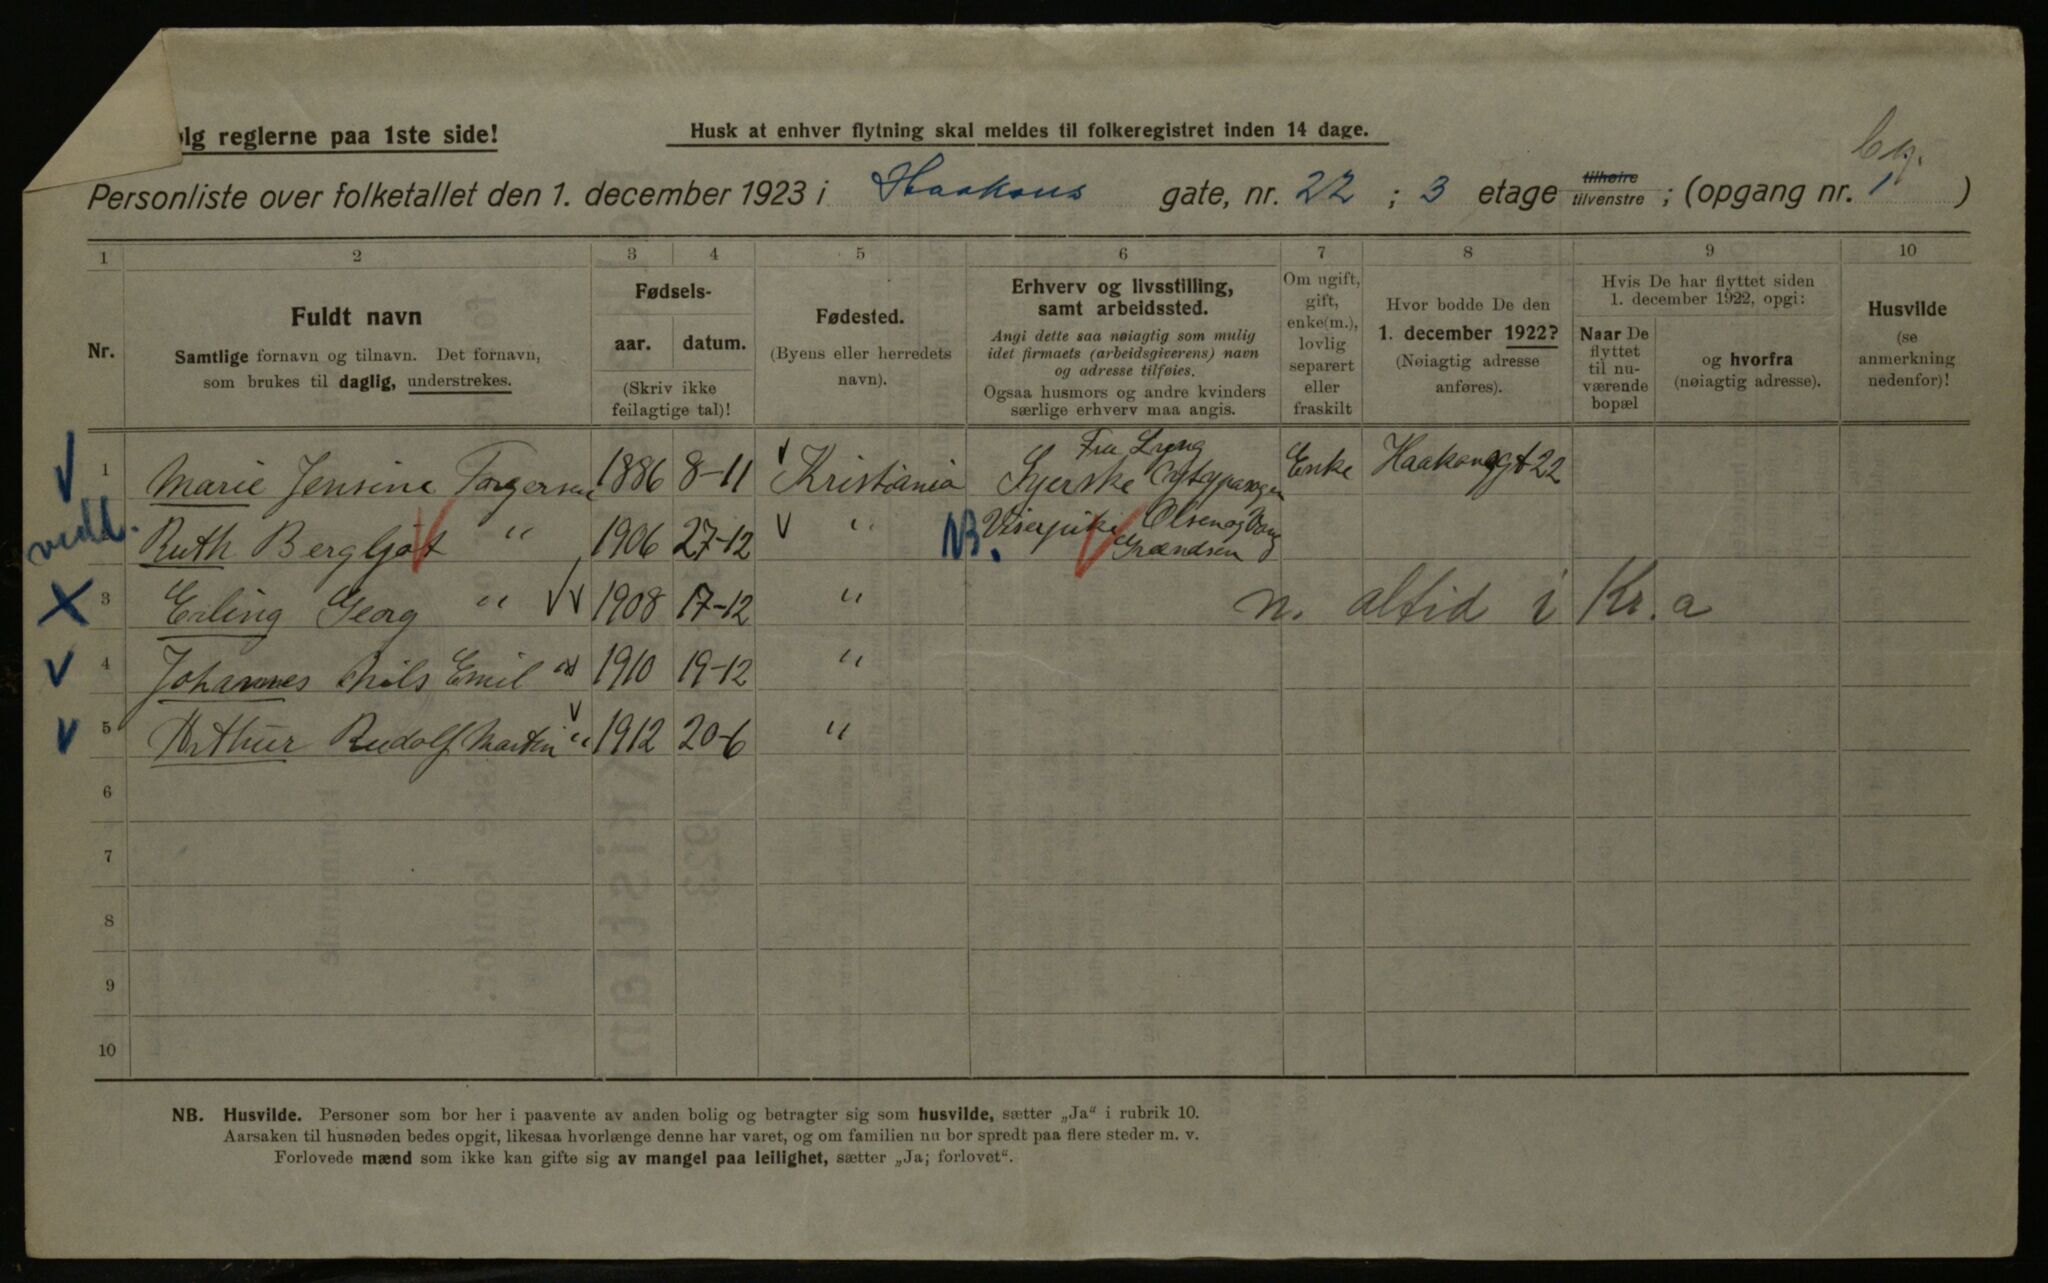 olg reglerne paa 1ste side!
Husk at enhver flytning skal meldes til folkeregistret inden 14 dage.
Personliste over folketallet den 1. december 1923 i Haakons gate, nr. 22 ; 3 etage tilhøire tilvenstre ; (opgang nr. 1 )
1 2 3 4 5 6 7 8 9 10
Nr.
Fuldt navn
Samtlige fornavn og tilnavn. Det fornavn,
som brukes til daglig, understrekes.
Fødsels-
aar. datum.
(Skriv ikke
feilagtige tal)!
Fødested.
(Byens eller herredets
navn).
Erhverv og livsstilling,
samt arbeidssted.
Angi dette saa nøiagtig som mulig
idet firmaets (arbeidsgiverens) navn
og adresse tilføies.
Ogsaa husmors og andre kvinders
særlige erhverv maa angis.
Om ugift,
gift,
enke(m.),
lovlig
separert
eller
fraskilt
Hvor bodde De den
1. december 1922?
(Nøiagtig adresse
anføres).
Hvis De har flyttet siden
1. december 1922, opgi:
Naar De
flyttet
til nu-
værende
bopæl
og hvorfra
(nøiagtig adresse).
Husvilde
(se
anmerkning
nedenfor)!
1 Marie Jensine Torgersen 1886 8-11 Kristiania Syerske Enke Haakonsgt 22
vedl. Ruth Bergljot " 1906 27-12 " NB. Viserpike Olsen og
3 Erling Georg " 1908 17-12 " n. altid i Kr.a
4 Johannes Nils Emil " 1910 19-12 "
5 Arthur Rudolf Martin " 1912 20-6 "
6
7
8
9
10
NB. Husvilde. Personer som bor her i paavente av anden bolig og betragter sig som husvilde, sætter „Ja“ i rubrik 10.
Aarsaken til husnøden bedes opgit, likesaa hvorlænge denne har varet, og om familien nu bor spredt paa flere steder m. v.
Forlovede mænd som ikke kan gifte sig av mangel paa leilighet, sætter „Ja; forlovet“.